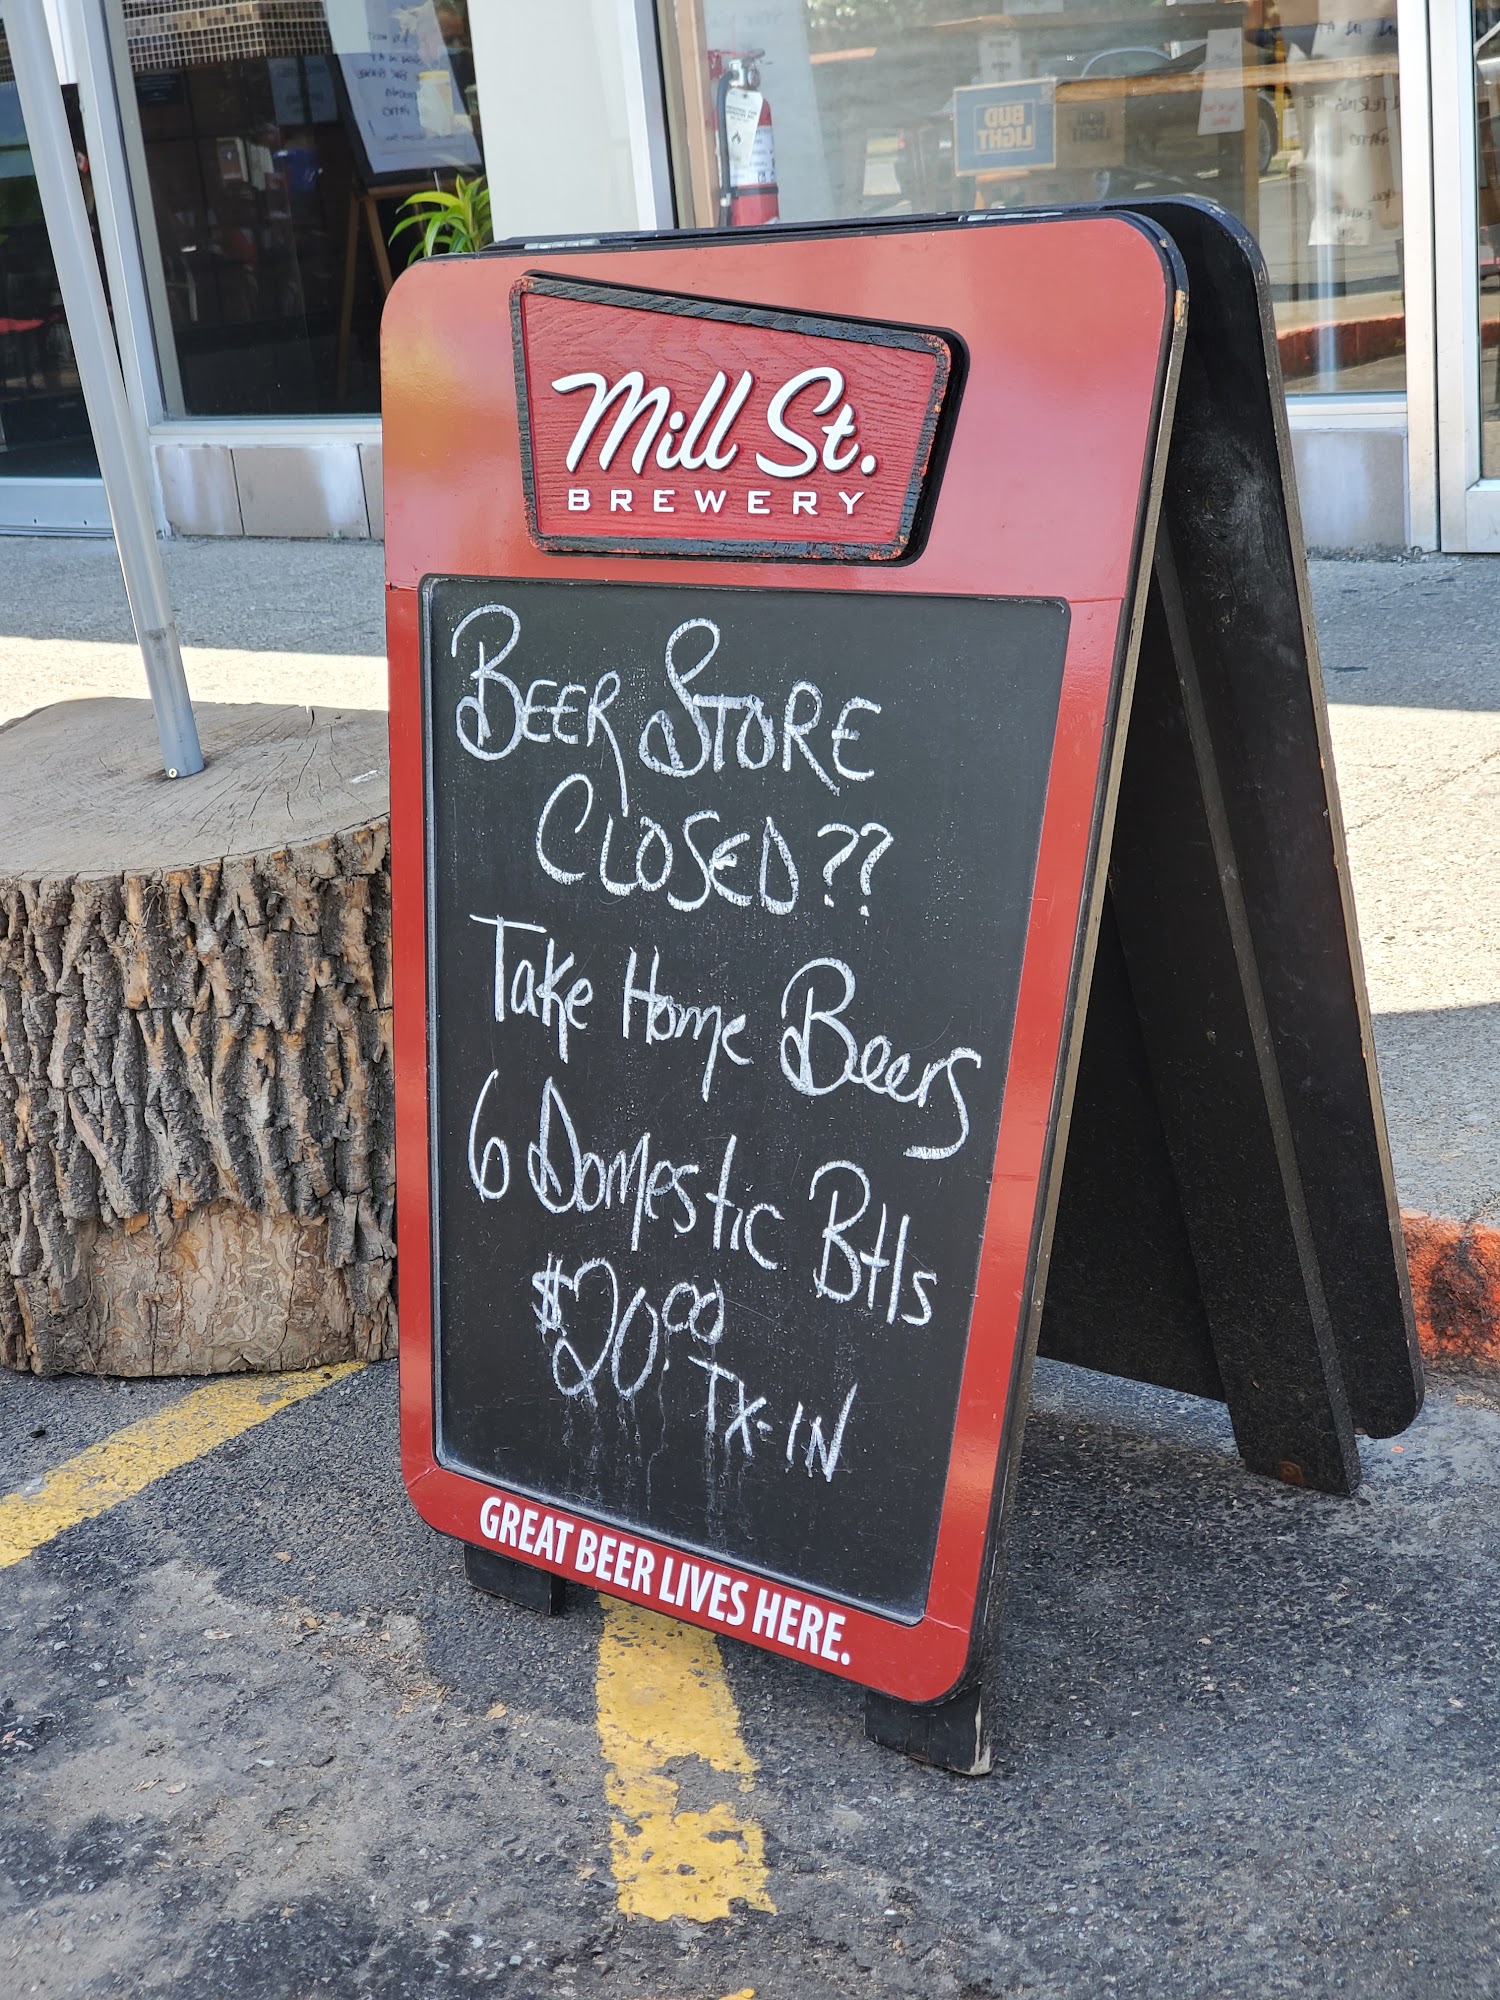 BUD
LIGHT
Mill St.
BREWERY
BEER STORE
CLOSED??
Take Home Beers
6 Domestic Btls
$20.00
TX-IN
GREAT BEER LIVES HERE.